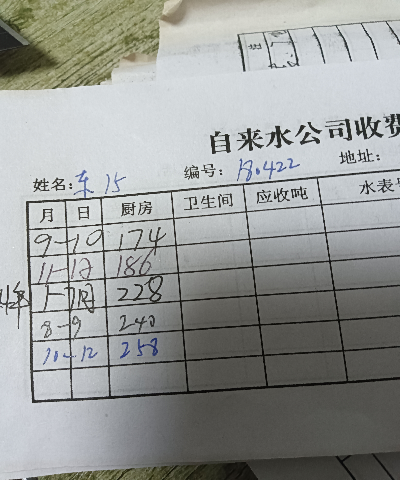 自来水公司收费
姓名: 东 15 编号: 18.422 地址:
月 日 厨房 卫生间 应收吨 水表
9-10 174
11-12 186
1-7月 228
8-9 242
10-12 258